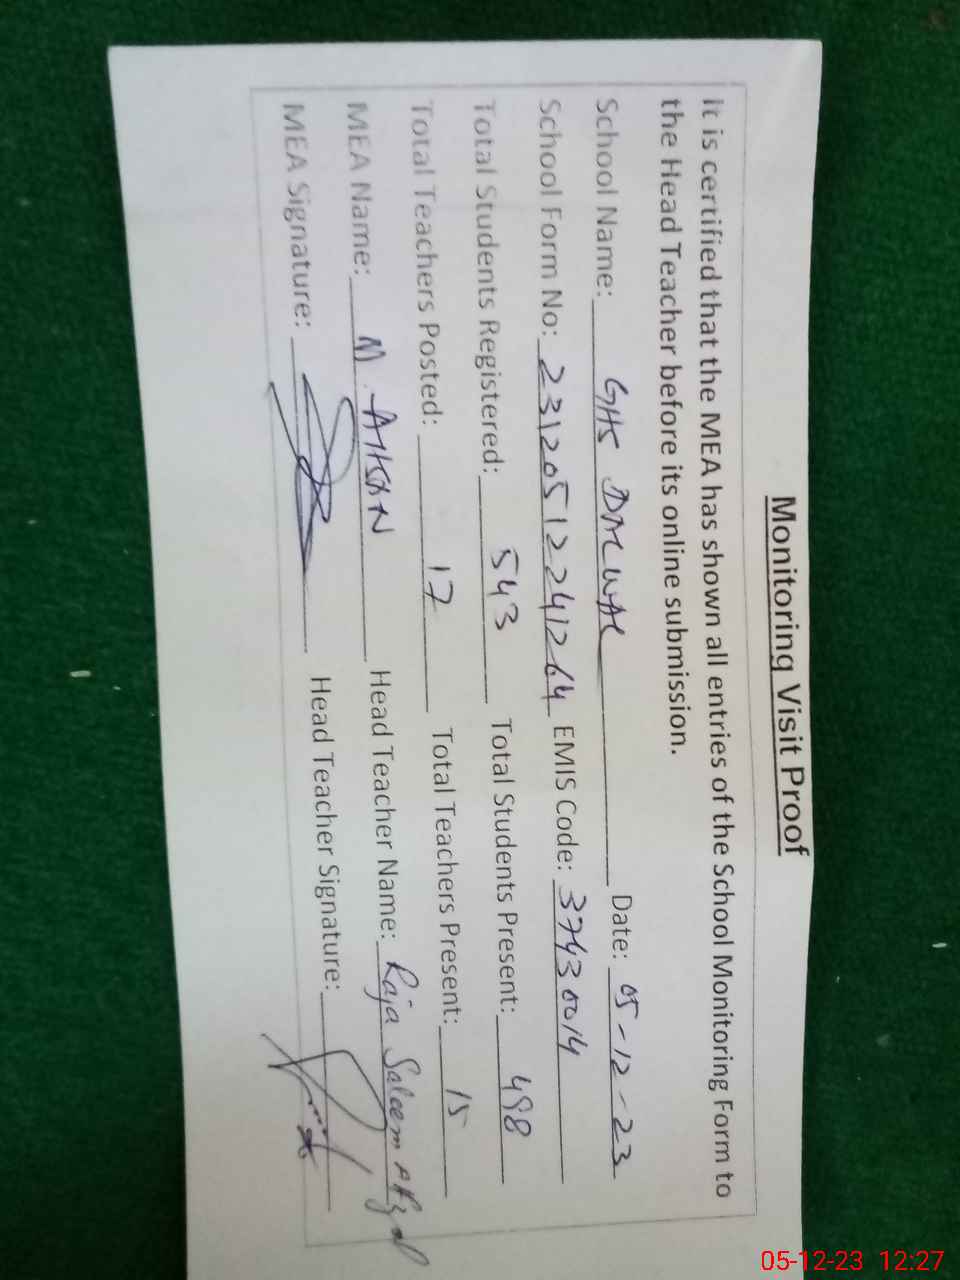 Monitoring Visit Proof
It is certified that the MEA has shown all entries of the School Monitoring Form to
the Head Teacher before its online submission.
School Name: GHS Date: 05-12-23
School Form No: 231205122241264 EMIS Code: 37430014
Total Students Registered: 543 Total Students Present: 498
Total Teachers Posted: 17 Total Teachers Present: 15
MEA Name: M. AHSAN Head Teacher Name: Raja Saleem Afzal
MEA Signature: Head Teacher Signature:
05-12-23 12:27